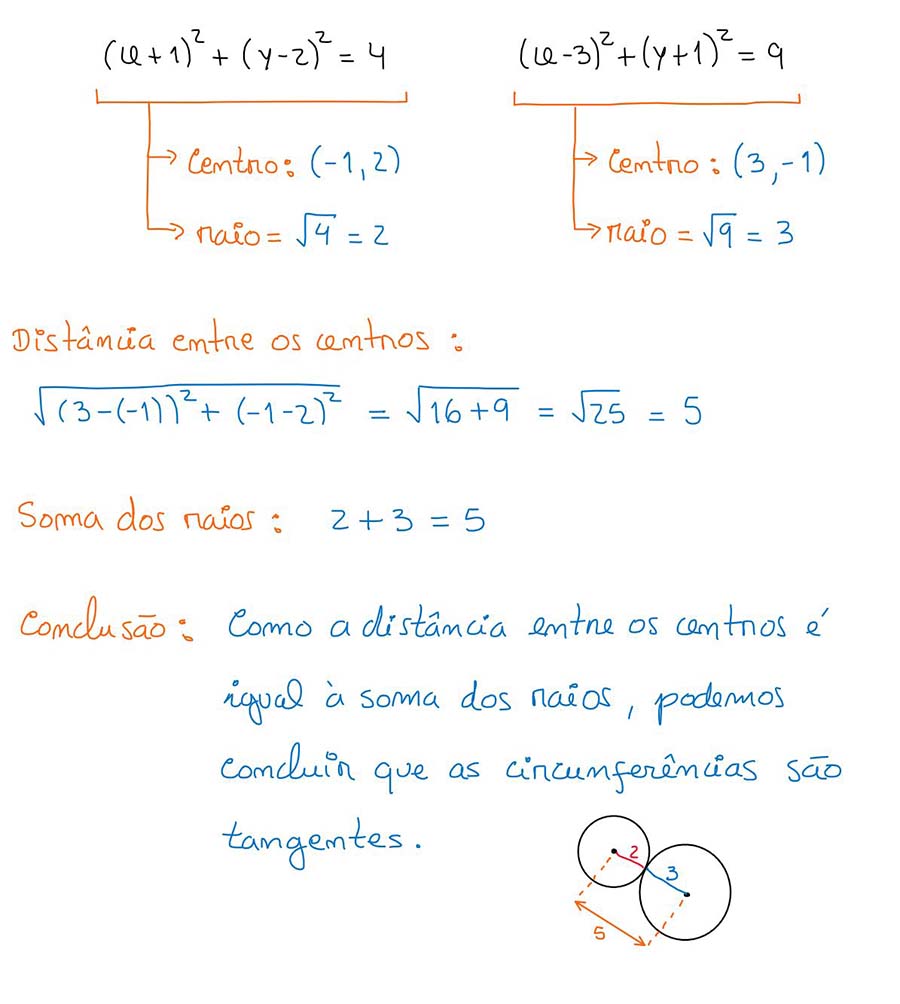 (x+1)² + (y-2)² = 4
(x-3)² + (y+1)² = 9
→ Centro: (-1, 2)
→ Centro: (3, -1)
→ raio = √4 = 2
→ raio = √9 = 3
Distância entre os centros:
√((3-(-1))² + (-1-2)²) = √(16+9) = √25 = 5
Soma dos raios: 2 + 3 = 5
Conclusão: Como a distância entre os centros é
igual à soma dos raios, podemos
concluir que as circunferências são
tangentes.
2
3
5